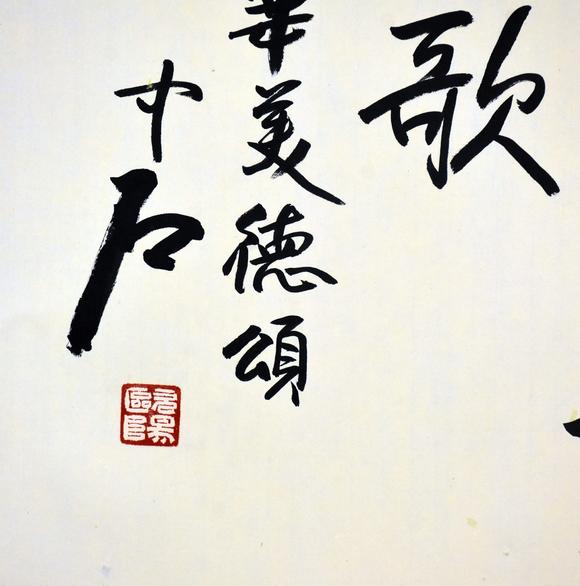 歌
華美德頌
中石